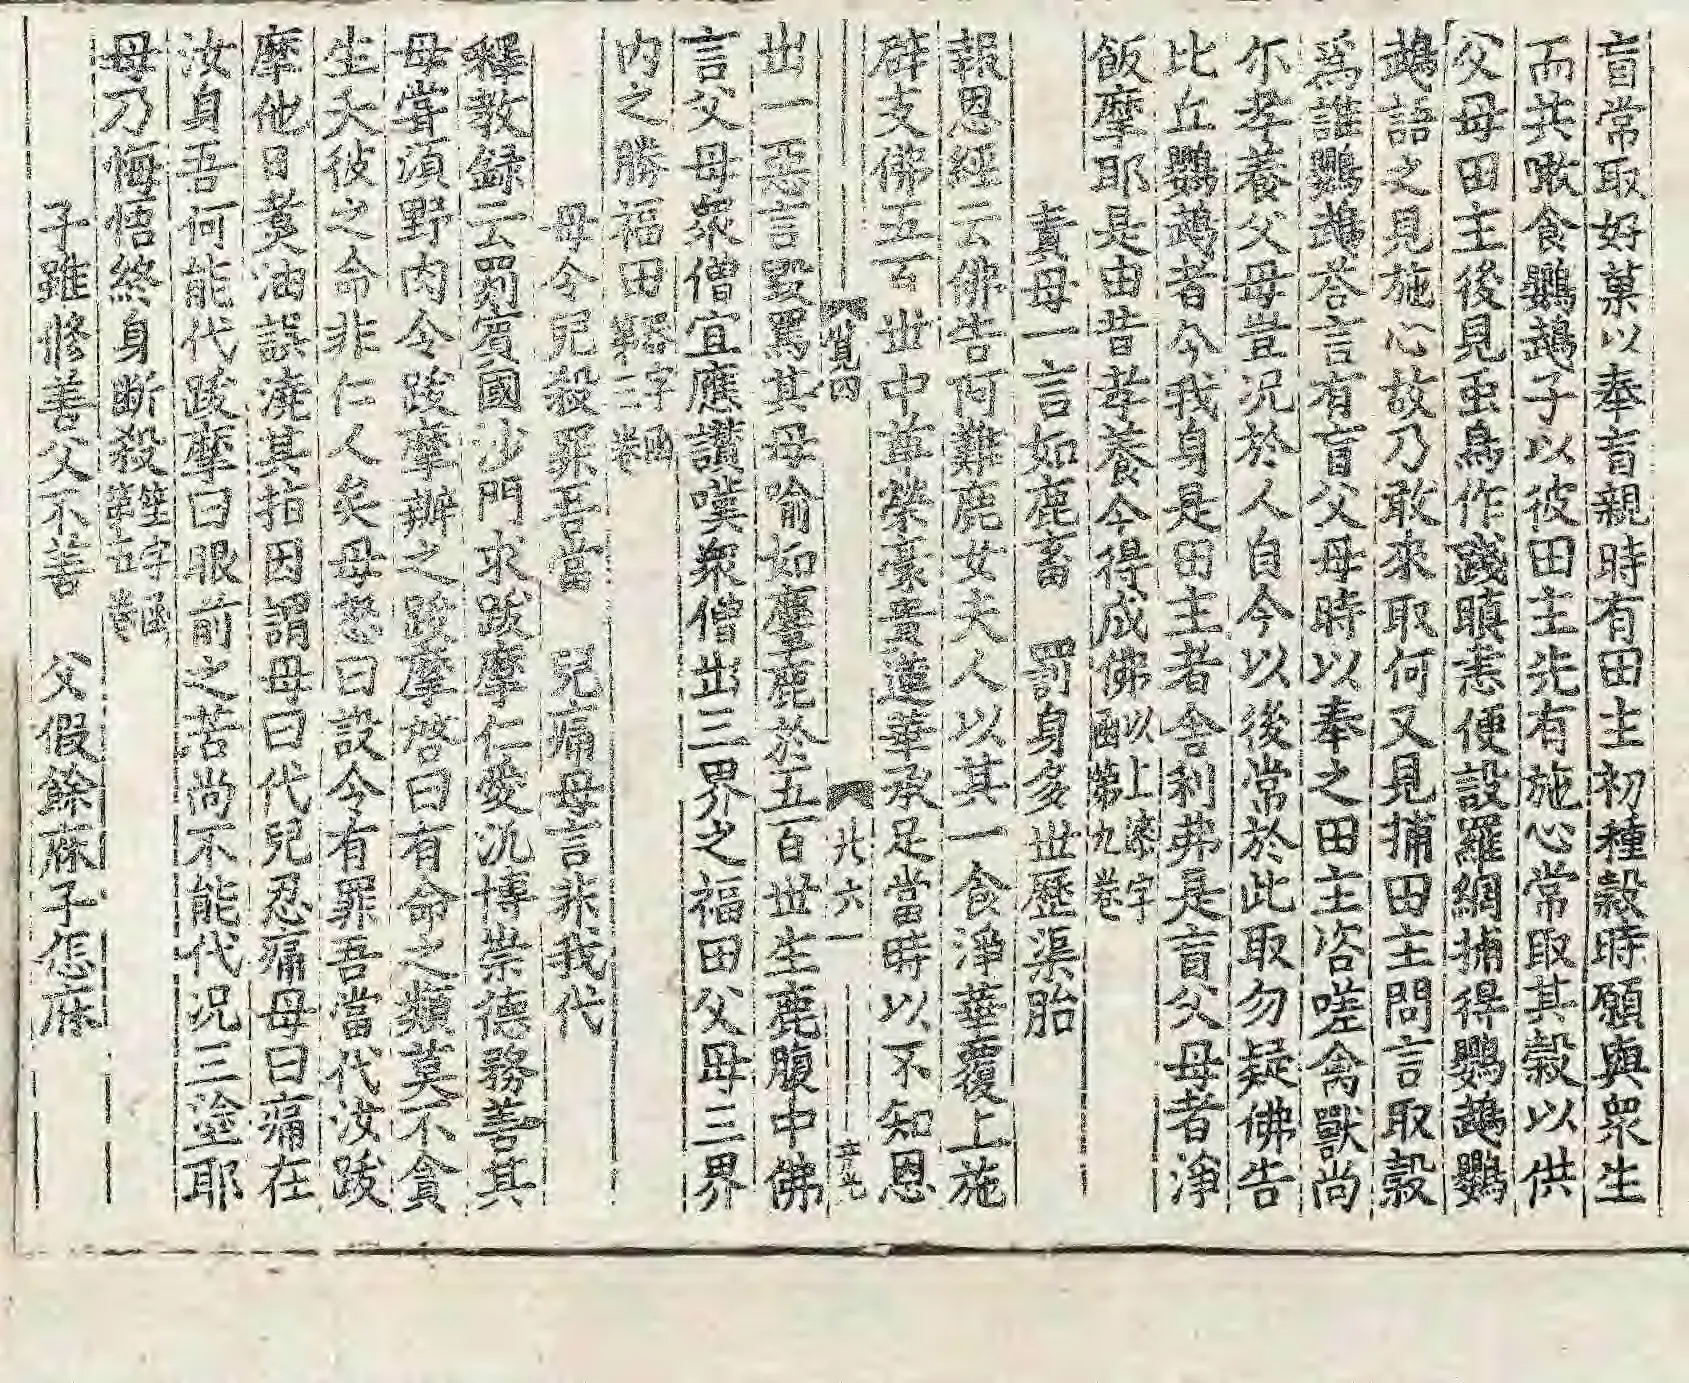 盲常取好菓以奉盲親時有田主初種穀時願與衆生
而共噉食鸚鵡子以彼田主先有施心常取其穀以供
父母田主後見虫鳥作踐瞋恚便設羅網捕得鸚鵡鸚
鵡語之見施心故乃敢來取何又見捕田主問言取穀
爲誰鸚鵡荅言有盲父母時以奉之田主咨嗟禽獸尚
尔孝養父母豈况於人自今以後常於此取勿疑佛告
比丘鸚鵡者今我身是田主者舍利弗是盲父母者淨
飯摩耶是由昔孝養今得成佛以上染字函第九卷
責母一言如鹿畜　罰身多世歷渠胎
報恩經云佛告阿難鹿女夫人以其一食淨華覆上施
辟支佛五百世中華榮豪貴蓮華承足當時以不知恩
覽四　廾六一　章光
出一惡言毀罵其母喻如麈鹿於五百世生鹿腹中佛
言父母衆僧宜應讚嘆衆僧出三界之福田父母三界
内之勝福田字函三卷
母令兒殺罪吾當　兒痛母言非我代
釋教録云罽賓國沙門求跋摩仁愛汎博崇德務善其
母甞湏野肉令跋摩辦之跋摩啓曰有命之類莫不貪
生夭彼之命非仁人矣母怒曰設令有罪吾當代汝跋
摩他日煑油誤澆其指因謂母曰代兒忍痛母曰痛在
汝身吾何能代跋摩曰眼前之苦尚不能代况三塗耶
母乃悔悟終身断殺字函卷
子雖修善父不善　父假餘蔴子怎蔴